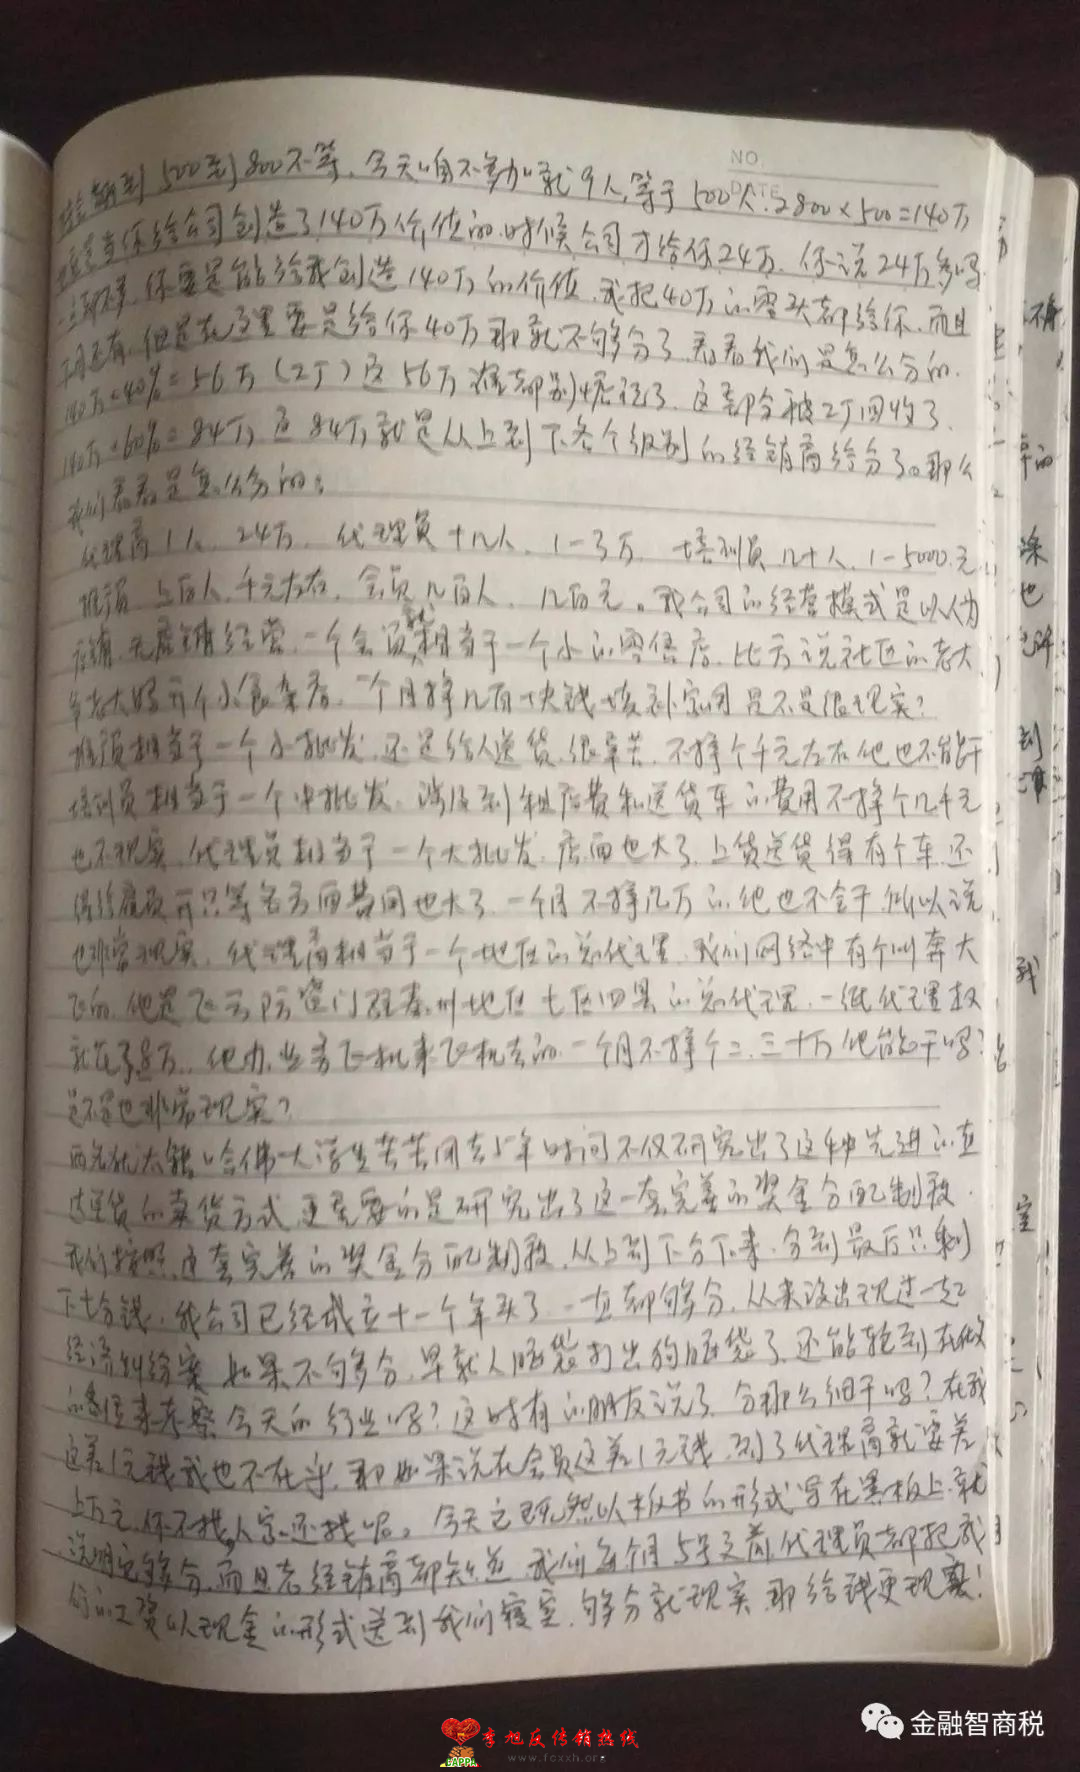 NO.
DATE
到500到800不等。今天咱不多加就9人,等于500人。2800×500=140万
当你给公司创造了140万价值的时候公司才给你24万。你说24万多吗
不多,你要是能给我创造140万的价值,我把40万的零头都给你,而且
还有,但是在这里要是给你40万那就不够分了,看看我们是怎么分的。
140万×40%=56万(2厂)这56万谁都别惦记了,这部分被2厂回收了。
140万×60%=84万,这84万就是从上到下各个级别的经销商给分了。那么
我们看看是怎么分的:
代理商1人,24万,代理员十几人,1-3万,培训员几十人,1-5000元
推广员上百人,千元左右,会员几百人,几百元。我公司的经营模式是以人为
店铺,无店铺经营,一个会员就相当于一个小的零售店,比方说社区的老大
爷老大妈开个小食杂店,一个月挣几百块钱填补家用是不是很现实?
推广员相当于一个小批发,还是给人送货,很辛苦,不挣个千元左右他也不能干
培训员相当于一个中批发,涉及到租店费和送货车的费用不挣个几千元
也不现实,代理员相当于一个大批发,店面也大了,上货送货得有个车,还
得给雇员开工资等各方面费用也大了,一个月不挣几万的他也不会干所以说
也非常现实,代理商相当于一个地区的总代理,我们网络中有个叫奔大
飞的,他是飞云防盗门驻泰州地区七区四县的总代理,一级代理权
就花了8万,他办业务飞机来飞机去的,一个月不挣个二、三十万他能干吗?
是不是也非常现实?
两名犹太籍哈佛大学生苦苦用去5年时间不仅研究出了这种先进的直
达送货的卖货方式,更重要的是研究出了这一套完善的奖金分配制度。
我们按照这套完善的奖金分配制度,从上到下分下来,分到最后只剩
下七分钱,我公司已经成立十一个年头了,一直都够分,从来没出现过一起
经济纠纷案,如果不够分,早就人脑袋打出狗脑袋了,还能轮到在做
的各位来考察今天的行业吗?这时有的朋友说了,分那么细干吗?在我
这差1元钱我也不在乎,那如果说在会员这差1元钱,到了代理商就要差
上万元,你不找,人家还找呢。今天它既然以板书的形式写在黑板上,就
说明它够分,而且老经销商都知道,我们每个月5号之前,代理员都把我
们的工资以现金的形式送到我们寝室,够分就现实,那给钱更现实!
李旭反传销热线
www.fcxxh.org
金融智商税